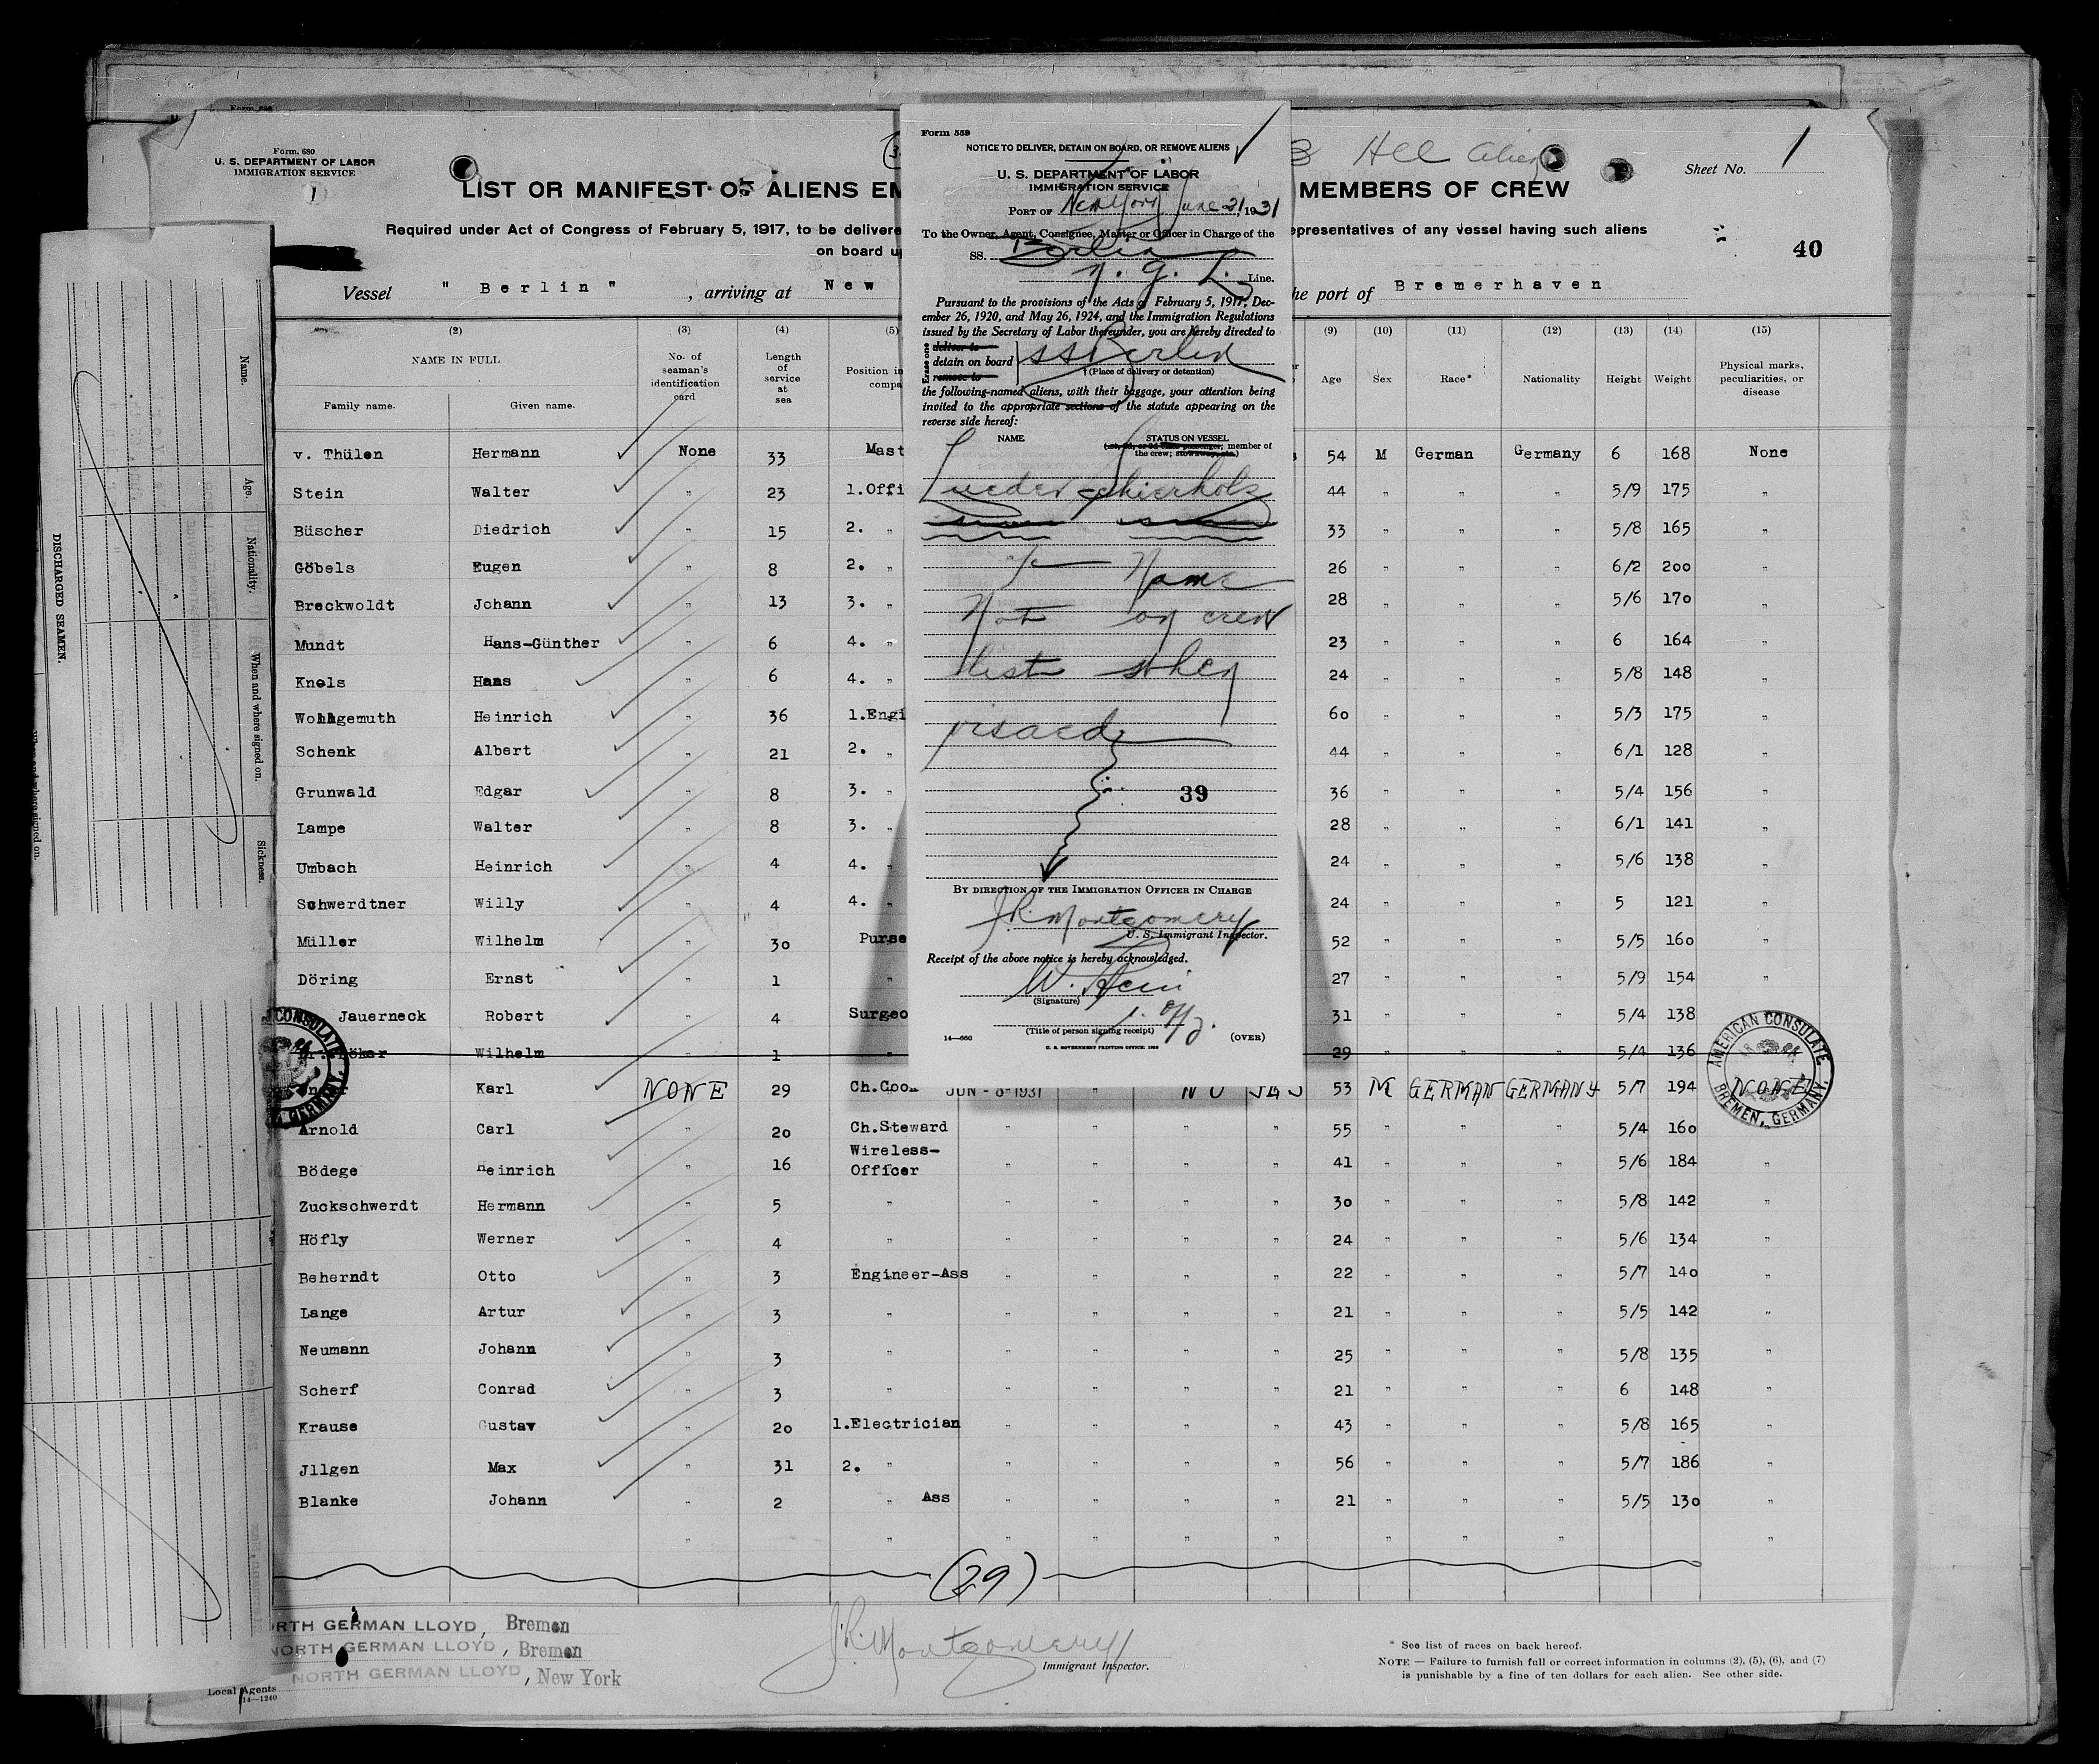 Form. 680
U. S. DEPARTMENT OF LABOR
IMMIGRATION SERVICE
1
LIST OR MANIFEST OF ALIENS EM
MEMBERS OF CREW
Sheet No. 1
Required under Act of Congress of February 5, 1917, to be delivere
epresentatives of any vessel having such aliens
on board u
40
Vessel " Berlin " , arriving at New
he port of Bremerhaven
(2) (3) (4) (5) (9) (10) (11) (12) (13) (14) (15)
NAME IN FULL
Family name. Given name.
No. of seaman's identification card
Length of service at sea
Position in
compa
Age Sex Race* Nationality Height Weight
Physical marks, peculiarities, or disease
v. Thülen Hermann None 33 Mast 54 M German Germany 6 168 None
Stein Walter " 23 1.Offi 44 " " " 5/9 175 "
Büscher Diedrich " 15 2. " 33 " " " 5/8 165 "
Göbels Eugen " 8 2. " 26 " " " 6/2 200 "
Breckwoldt Johann " 13 3. " 28 " " " 5/6 170 "
Mundt Hans-Günther " 6 4. " 23 " " " 6 164 "
Knels Hans " 6 4. " 24 " " " 5/8 148 "
Wohlgemuth Heinrich " 36 1.Engi 60 " " " 5/3 175 "
Schenk Albert " 21 2. " 44 " " " 6/1 128 "
Grunwald Edgar " 8 3. " 36 " " " 5/4 156 "
Lampe Walter " 8 3. " 28 " " " 6/1 141 "
Umbach Heinrich " 4 4. " 24 " " " 5/6 138 "
Schwerdtner Willy " 4 4. " 24 " " " 5 121 "
Müller Wilhelm " 30 Purse 52 " " " 5/5 160 "
Döring Ernst " 1 " 27 " " " 5/9 154 "
Jauerneck Robert " 4 Surgeo 31 " " " 5/4 138 "
Wilhelm " 1 " 29 " " " 5/4 136 "
Karl NONE 29 Ch.Cook JUN - 8-1931 " NO YES 53 M GERMAN GERMANY 5/7 194 NONE
Arnold Carl " 20 Ch.Steward " " " " 55 " " " 5/4 160 "
Bödege Heinrich " 16 Wireless-Officer " " " " 41 " " " 5/6 184 "
Zuckschwerdt Hermann " 5 " " " " " 30 " " " 5/8 142 "
Höfly Werner " 4 " " " " " 24 " " " 5/6 134 "
Beherndt Otto " 3 Engineer-Ass " " " " 22 " " " 5/7 140 "
Lange Artur " 3 " " " " " 21 " " " 5/5 142 "
Neumann Johann " 3 " " " " " 25 " " " 5/8 135 "
Scherf Conrad " 3 " " " " " 21 " " " 6 148 "
Krause Gustav " 20 1.Electrician " " " " 43 " " " 5/8 165 "
Jllgen Max " 31 2. " " " " " 56 " " " 5/7 186 "
Blanke Johann " 2 " Ass " " " " 21 " " " 5/5 130 "
(29)
RTH GERMAN LLOYD, Bremen
NORTH GERMAN LLOYD, Bremen
NORTH GERMAN LLOYD, New York
Local Agents
14—1240
J.R. Montgomery
Immigrant Inspector.
* See list of races on back hereof.
NOTE — Failure to furnish full or correct information in columns (2), (5), (6), and (7)
is punishable by a fine of ten dollars for each alien. See other side.
AMERICAN CONSULATE
BREMEN, GERMANY.
Form 559
NOTICE TO DELIVER, DETAIN ON BOARD, OR REMOVE ALIENS
U. S. DEPARTMENT OF LABOR
IMMIGRATION SERVICE
PORT OF New York June 21, 1931
To the Owner, Agent, Consignee, Master or Officer in Charge of the
SS. Berlin
N. G. L. Line.
Pursuant to the provisions of the Acts of February 5, 1917, Dec-
ember 26, 1920, and May 26, 1924, and the Immigration Regulations
issued by the Secretary of Labor thereunder, you are hereby directed to
Erase one
deliver to
detain on board
remove to
SS Berlin
† (Place of delivery or detention)
the following-named aliens, with their baggage, your attention being
invited to the appropriate sections of the statute appearing on the
reverse side hereof:
NAME STATUS ON VESSEL
member of
the crew; stowaway, etc.)
Lueder Schierholz
Name
Not on crew
list when
visaed
39
BY DIRECTION OF THE IMMIGRATION OFFICER IN CHARGE
J.R. Montgomery
U. S. Immigrant Inspector.
Receipt of the above notice is hereby acknowledged.
W. Stein
(Signature)
1. Off.
(Title of person signing receipt)
14—660
(OVER)
U. S. GOVERNMENT PRINTING OFFICE
DISCHARGED SEAMEN.
Name.
Age.
Nationality.
When and where signed on.
Sickness.